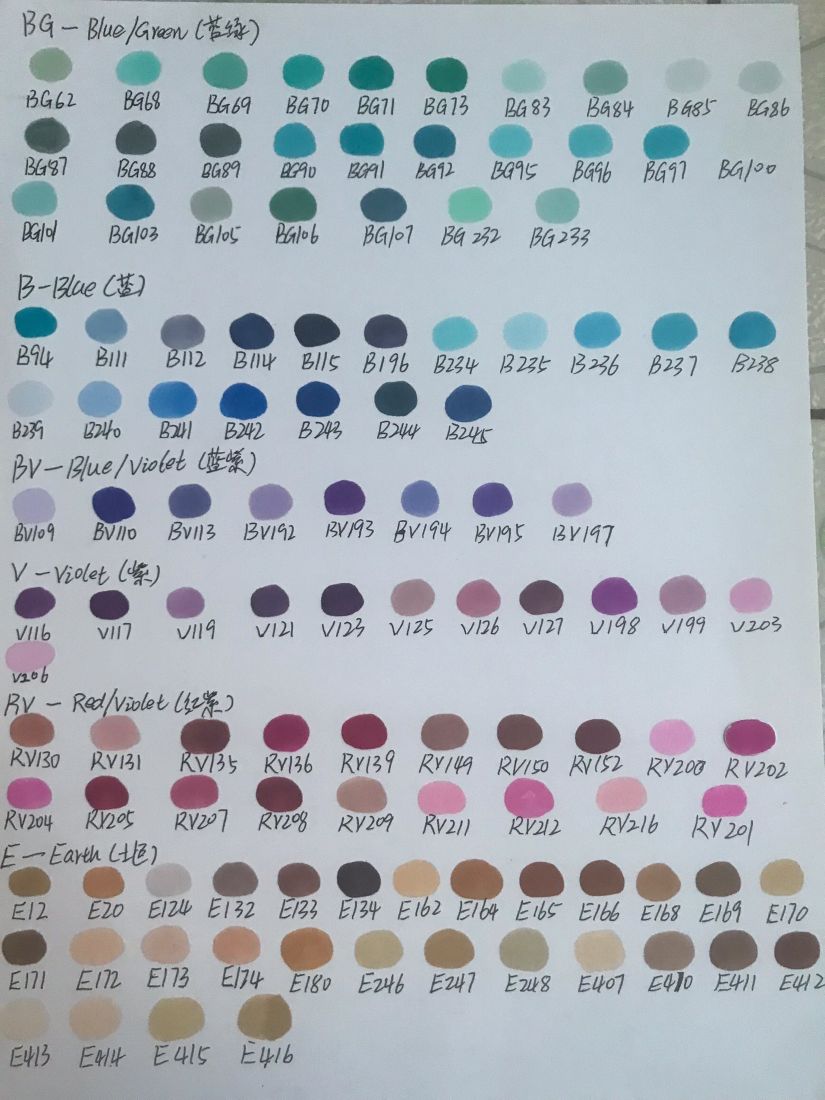 BG-Blue/Green(蓝绿)
BG62 BG68 BG69 BG70 BG71 BG73 BG83 BG84 BG85 BG86
BG87 BG88 BG89 BG90 BG91 BG92 BG95 BG96 BG97 BG100
BG101 BG103 BG105 BG106 BG107 BG232 BG233
B-Blue(蓝)
B94 B111 B112 B114 B115 B196 B234 B235 B236 B237 B238
B239 B240 B241 B242 B243 B244 B245
BV-Blue/Violet(蓝紫)
BV109 BV110 BV113 BV192 BV193 BV194 BV195 BV197
V-Violet(紫)
V116 V117 V119 V121 V123 V125 V126 V127 V198 V199 V203
V206
RV-Red/Violet(红紫)
RV130 RV131 RV135 RV136 RV139 RV149 RV150 RV152 RV200 RV202
RV204 RV205 RV207 RV208 RV209 RV211 RV212 RV216 RV201
E-Earth(土色)
E12 E20 E124 E132 E133 E134 E162 E164 E165 E166 E168 E169 E170
E171 E172 E173 E174 E180 E246 E247 E248 E407 E410 E411 E412
E413 E414 E415 E416